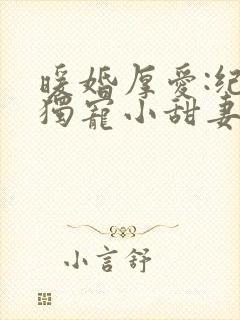 暖婚厚爱:纪
独寵小甜妻
小言舒